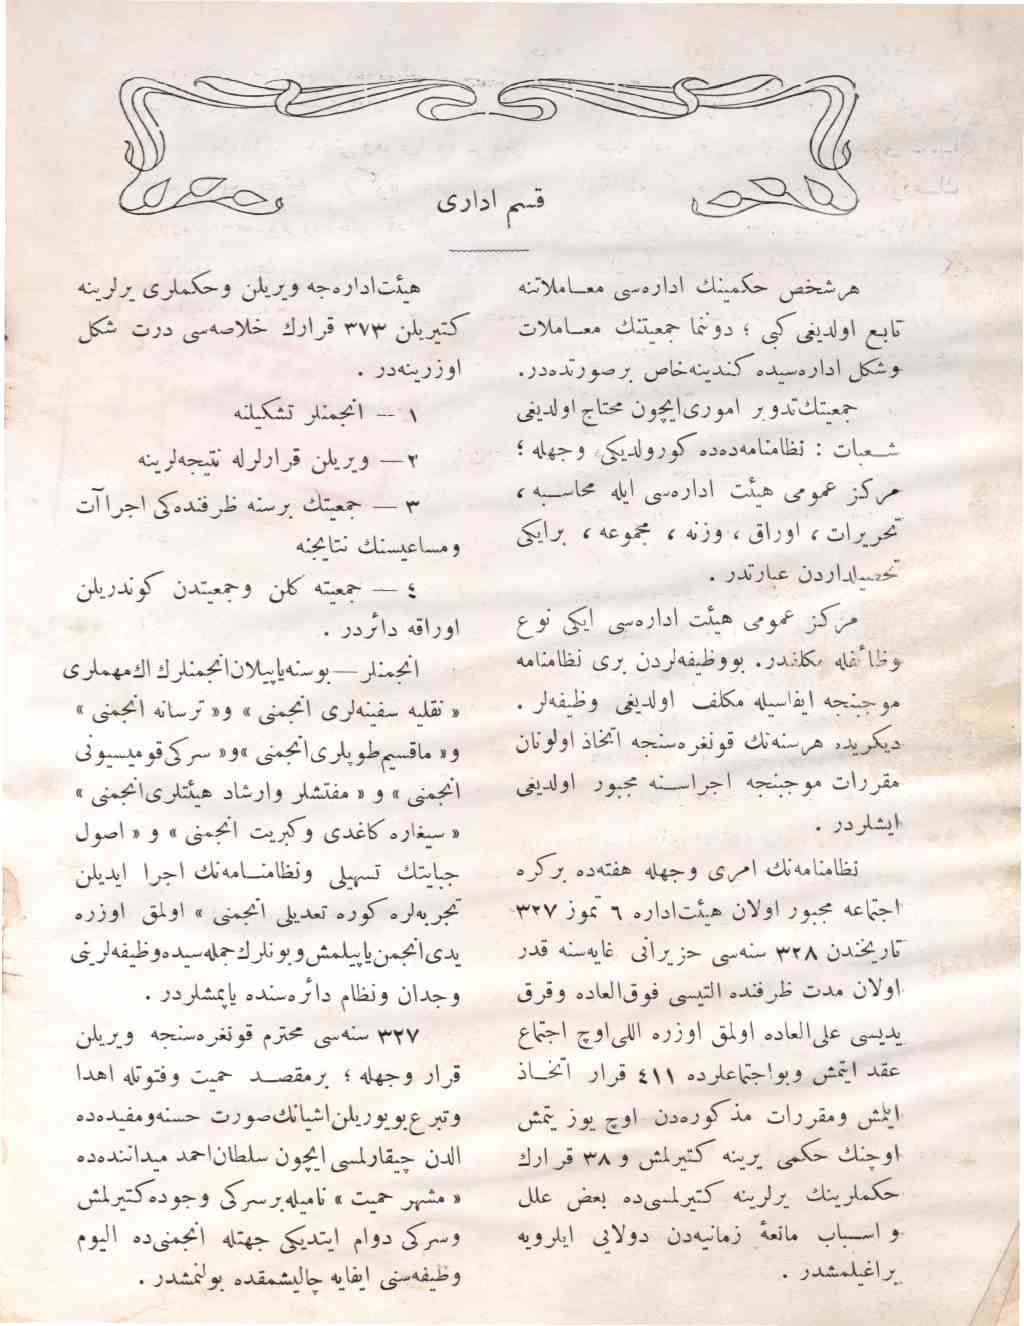 قسم اداری
هر شخص حكمینك اداره‌سی معـاملاتنه
تابع اولدیغی كبی ؛ دوننما جمعیتنك معـاملات
وشكل اداره‌سیده كندینه خاص برصورتده‌در.
جمعیتك تدویر اموری ایچون محتاج اولدیغی
شـعبات : نظامنامه‌ده‌ده كورولدیكی وجهله ؛
مركز عمومی هیئت اداره‌سی ایله محاسـبه ،
تحریرات ، اوراق ، وزنه ، مجموعه ، برایكی
تحصیلداردن عبارتدر .
مركز عمومی هیئت اداره‌سی ایكی نوع
وظائفله مكلفدر. بووظیفه‌لردن بری نظامنامه
موجبنجه ایفاسیله مكلف اولدیغی وظیفه‌لر .
دیكریده هرسنه‌نك قونغره‌سنجه اتخاذ اولونان
مقررات موجبنجه اجراسـنه مجبور اولدیغی
ایشلردر .
نظامنامه‌نك امری وجهله هفته‌ده بركره
اجتماعه مجبور اولان هیئت‌اداره ٦ تموز ٣٢٧
تاریخندن ٣٢٨ سنه‌سی حزیرانی غایه‌سنه قدر
اولان مدت ظرفنده التیسی فوق‌العاده وقرق
یدیسی علی‌العاده اولمق اوزره اللی‌اوچ اجتماع
عقد ایتمش وبواجتماعلرده ٤١١ قرار اتخـاذ
ایلمش ومقررات مذكوره‌دن اوچ یوز یتمش
اوچنك حكمی یرینه كتیرلمش و ٣٨ قرارك
حكملرینك یرلرینه كتیرلمسی‌ده بعض علل
و اسـباب مانعهٔ زمانیه‌دن دولایی ایلرویه
براغیلمشدر .
هیئت‌اداره‌جه ویریلن وحكملری یرلرینه
كتیریلن ٣٧٣ قرارك خلاصه‌سی درت شكل
اوزرینه‌در .
١ — انجمنلر تشكیلنه
٢ — ویریلن قرارلرله نتیجه‌لرینه
٣ — جمعیتك برسنه ظرفنده‌كی اجراآت
ومساعیسنك نتایجنه
٤ — جمعیته كلن وجمعیتدن كوندریلن
اوراقه دائردر .
انجمنلر — بوسنه یاپیلان انجمنلرك اك مهملری
« نقلیه سفینه‌لری انجمنی » و« ترسانه انجمنی »
و« ماقسیم طوپلری انجمنی »و« سركی قومیسیونی
انجمنی » و « مفتشلر وارشاد هیئتلری انجمنی »
« سیغاره كاغدی وكبریت انجمنی » و « اصول
جبایتك تسهیلی ونظامنـامه‌نك اجرا ایدیلن
تجربه‌لره كوره تعدیلی انجمنی » اولمق اوزره
یدی انجمن یاپیلمش وبونلرك جمله‌سیده وظیفه‌لرینی
وجدان ونظام دائره‌سنده یاپمشلردر .
٣٢٧ سنه‌سی محترم قونغره‌سنجه ویریلن
قرار وجهله ؛ برمقصـد حمیت وفتوتله اهدا
وتبرع بویوریلن اشیانك صورت حسنه ومفیده‌ده
الدن چیقارلمسی ایچون سلطان‌احمد میداننده‌ده
« مشهر حمیت » نامیله برسركی وجوده كتیرلمش
وسركی دوام ایتدیكی جهتله انجمنی‌ده الیوم
وظیفه‌سنی ایفایه چالیشمقده بولنمشدر .